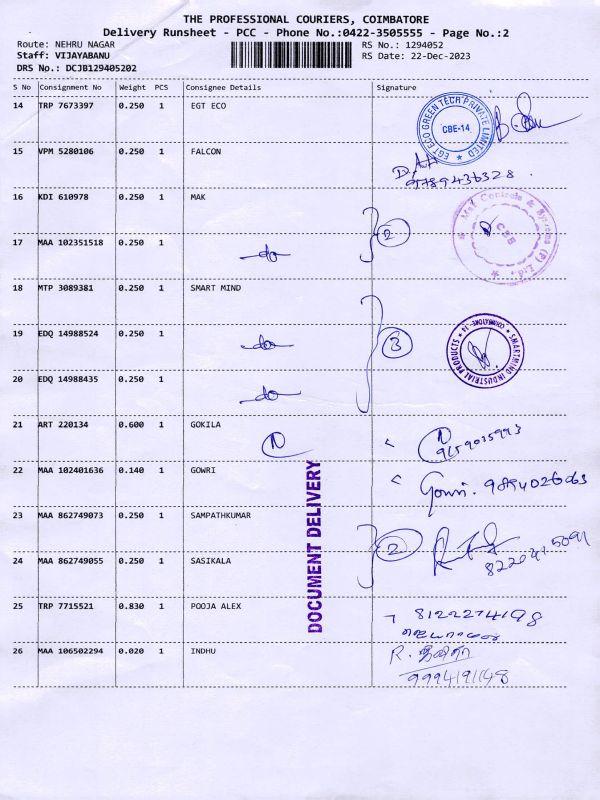 THE PROFESSIONAL COURIERS, COIMBATORE
Delivery Runsheet - PCC - Phone No.:0422-3505555 - Page No.:2
Route: NEHRU NAGAR RS No.: 1294052
Staff: VIJAYABANU RS Date: 22-Dec-2023
DRS No.: DCJB129405202
S No Consignment No Weight PCS Consignee Details Signature
14 TRP 7673397 0.250 1 EGT ECO
EGT ECO GREEN TECH PRIVATE LIMITED ★
CBE-14
15 VPM 5280106 0.250 1 FALCON
9789436328
16 KDI 610978 0.250 1 MAK
Mak Controls & Systems (P) Ltd.
CBE
2
17 MAA 102351518 0.250 1 -do-
18 MTP 3089381 0.250 1 SMART MIND
19 EDQ 14988524 0.250 1 -do- 3
SMARTMIND INDUSTRIAL PRODUCTS ★ COIMBATORE - 14 ★
20 EDQ 14988435 0.250 1 -do-
21 ART 220134 0.600 1 GOKILA
N N
9659035993
22 MAA 102401636 0.140 1 GOWRI
Gowri. 9894026063
23 MAA 862749073 0.250 1 SAMPATHKUMAR
2
8220415091
24 MAA 862749055 0.250 1 SASIKALA
DOCUMENT DELIVERY
25 TRP 7715521 0.830 1 POOJA ALEX
8122274198
26 MAA 106502294 0.020 1 INDHU
R.
9994191148